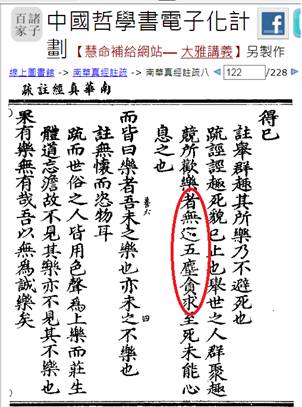 諸子
百家
中國哲學書電子化計
劃【慧命補給網站— 大雅講義】另製作
線上圖書館 -> 南華真經註疏 -> 南華真經註疏八 122 /228
南華真經註疏
得已
註舉群趣其所樂乃不避死也
疏誙誙趣死貌已止也舉世之人群聚趣
競所歡樂者無過五塵貪求至死未能心
息之也
而皆曰樂者吾未之樂也亦未之不樂也
註無懷而恣物耳
疏而世俗之人皆用色聲為上樂而莊生
體道忘澹故不見其樂亦不見其不樂也
果有樂無有哉吾以無為誠樂矣
四